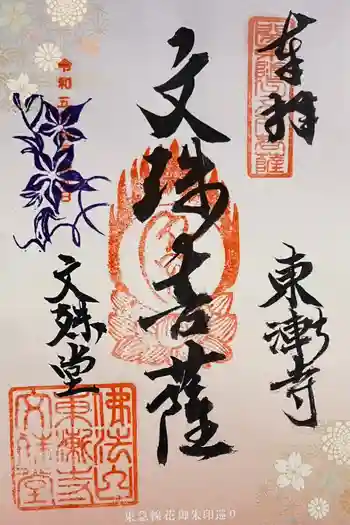 奉拝
東漸寺
文殊菩薩
令和五年
文殊堂
佛法山
東漸寺
文殊堂
東急線花御朱印巡り